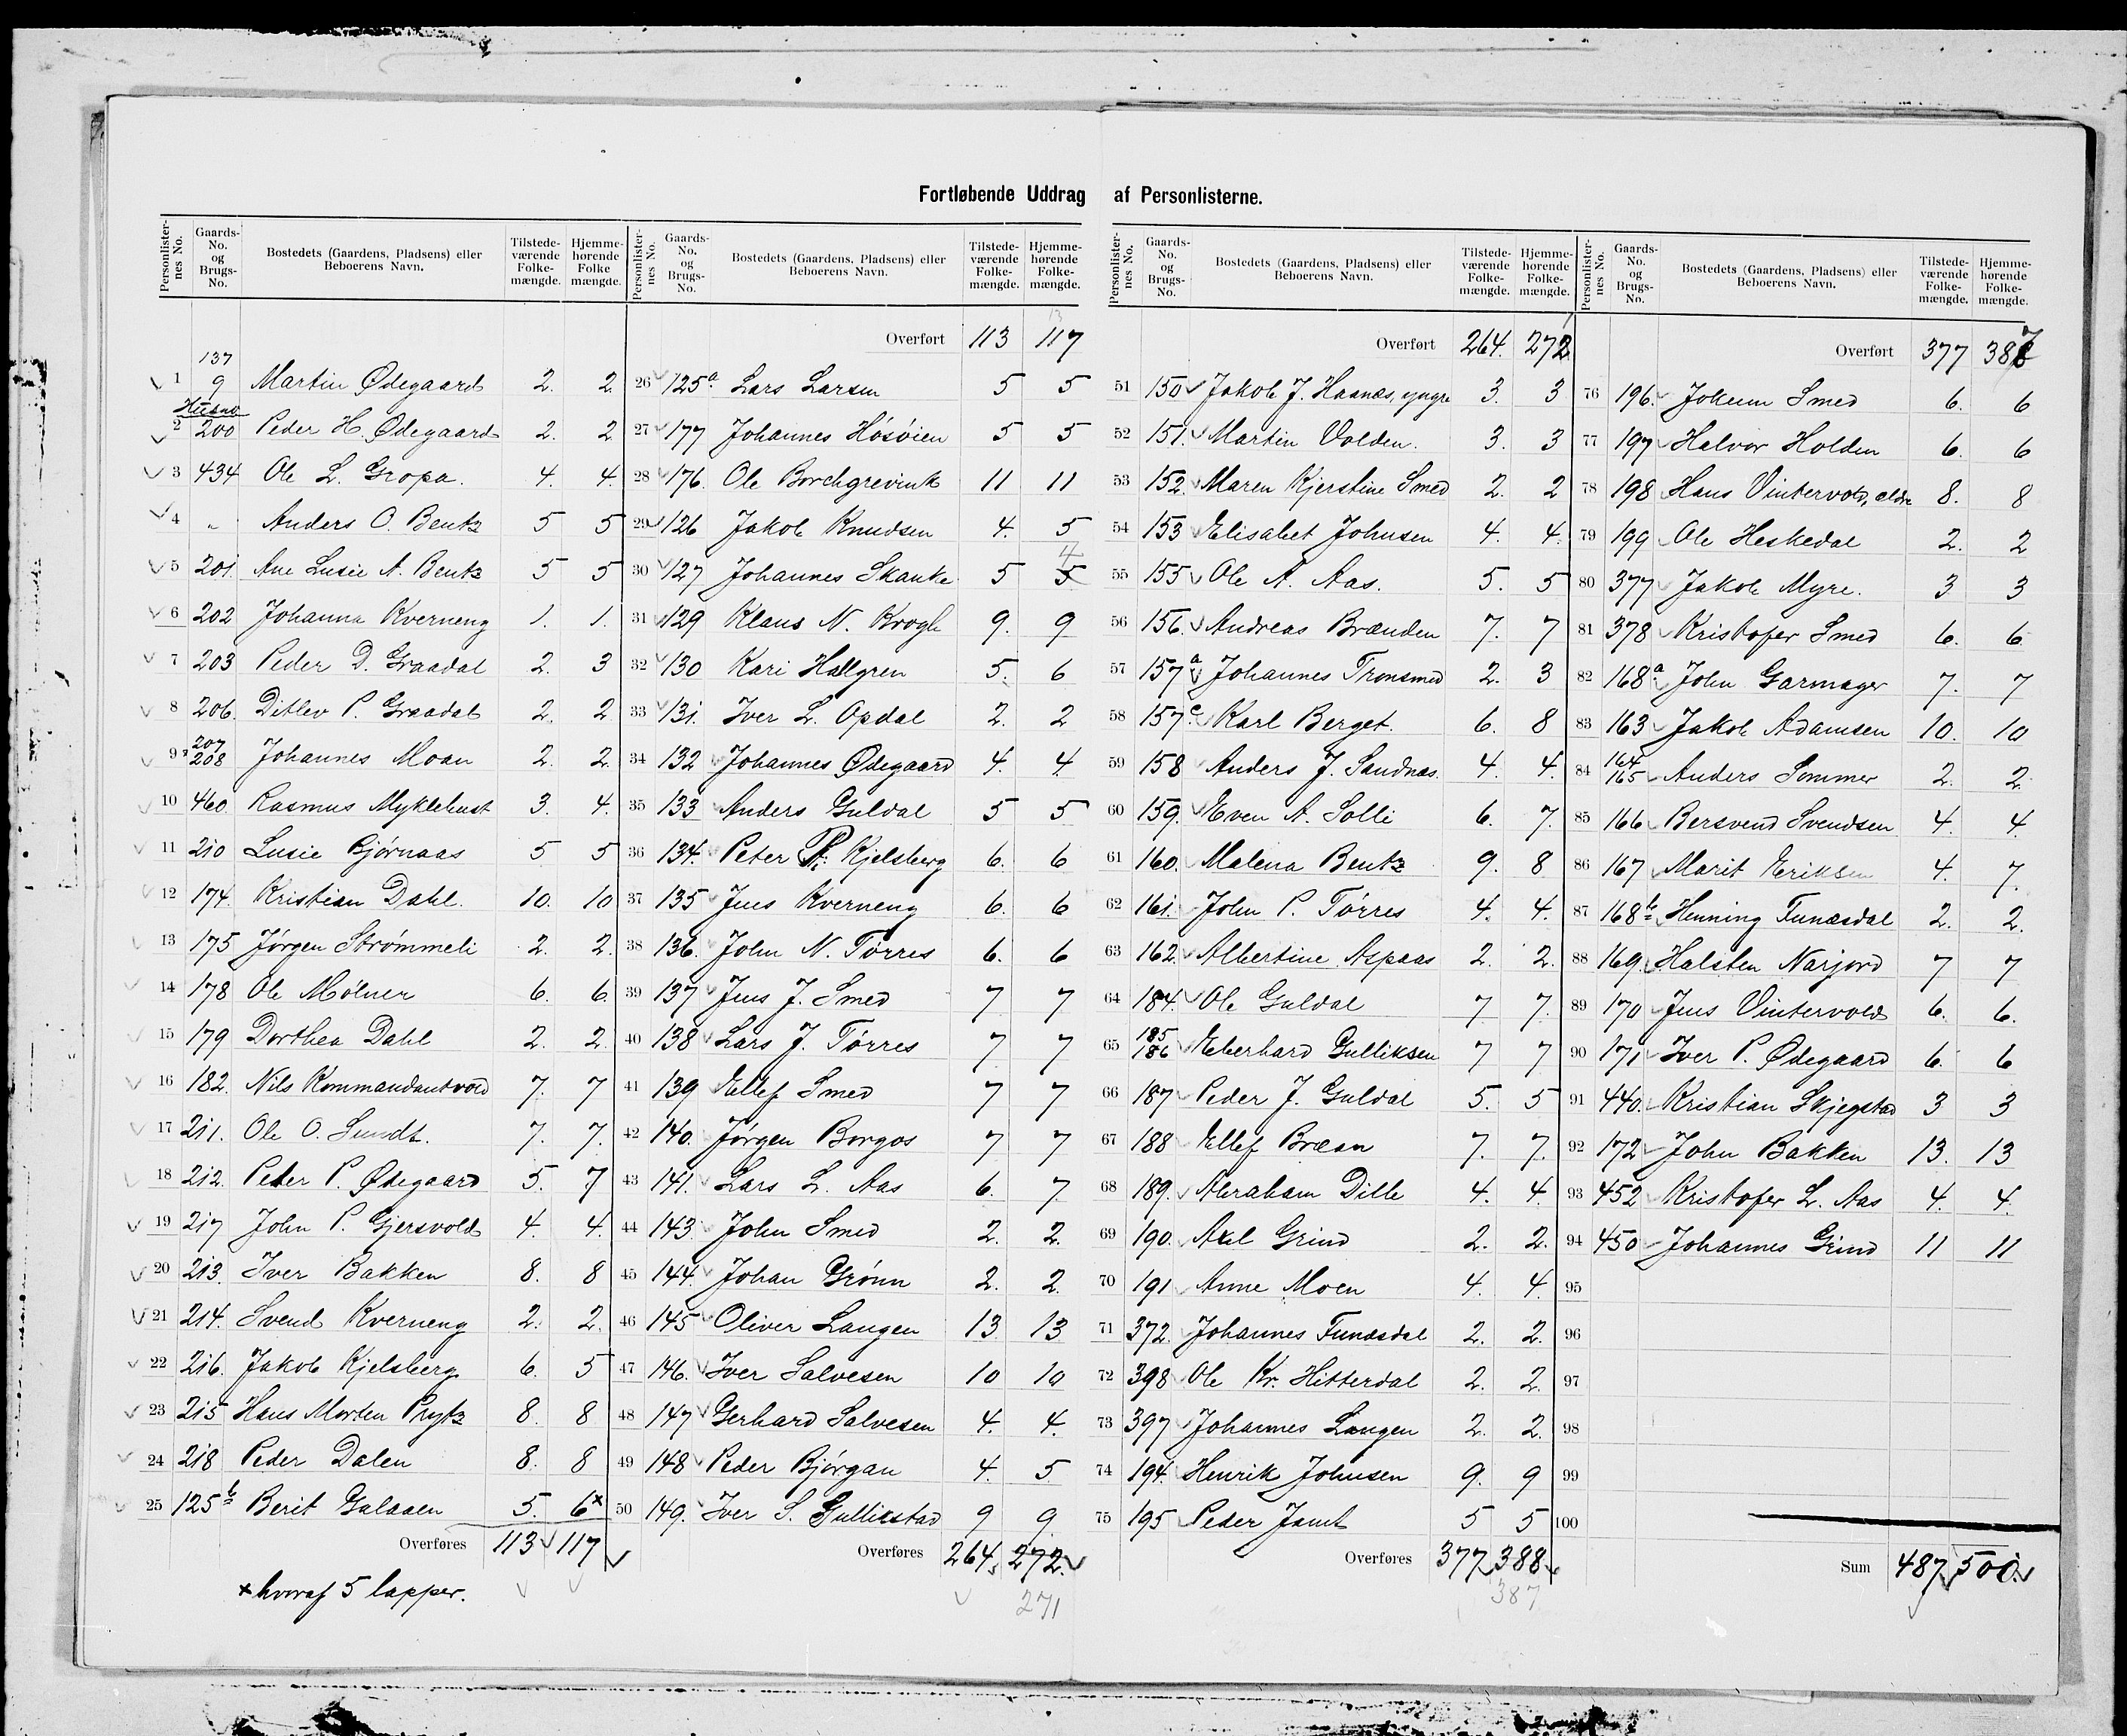 Fortløbende Uddrag af Personlisterne.
Personlister-nes No. Gaards-No. og Brugs-No. Bostedets (Gaardens, Pladsens) eller Beboerens Navn. Tilstede-værende Folke-mængde. Hjemme-hørende Folke mængde.
137
1 9 Martin Ødegaard 2. 2
Husno
2 200 Peder H. Ødegaard 2. 2
3 434 Ole L. Gropa. 4. 4.
4 " Anders O. Bentz 5 5
5 201. Ane Lusie A. Bentz 5 5
6 202 Johanna Kverneng 1. 1.
7 203 Peder D. Graadal 2. 3
8 206. Ditlev P. Graadal 2. 2
9 207 208 Johannes Moan 2. 2
10 460. Rasmus Myklebust 3. 4.
11 210 Lusie Gjørnaas 5 5
12 174. Kristian Dahl. 10. 10
13 175 Jørgen Strømmeli 2. 2.
14 178 Ole Mølner 6. 6.
15 179 Dorthea Dahl 2. 2.
16 182. Nils Kommandantvold 7. 7
17 211. Ole O. Sundt. 7. 7.
18 212. Peder P. Ødegaard 5. 7
19 217 John P. Gjersvold 4. 4.
20 213. Iver Bakken 8. 8
21 214. Svend Kverneng 2. 2.
22 216. Jakob Kjelsberg 6. 5
23 215 Hans Morten Prytz 8. 8
24 218 Peder Dalen 8. 8
25 125 b Berit Galaaen 5. 6 x
Overføres 113 117
x hvoraf 5 lapper.
Personlister-nes No. Gaards-No. og Brugs-No. Bostedets (Gaardens, Pladsens) eller Beboerens Navn. Tilstede-værende Folke-mængde. Hjemme-hørende Folke-mængde.
13
Overført 113 117
26 125 a. Lars Larsen 5 5
27 177 Johannes Høsøien 5 5
28 176. Ole Borchgrevink 11 11
29 126 Jakob Knudsen 4. 5
4
30 127 Johannes Skanke 5 5
31 129 Klaus N. Krogh 9. 9
32 130 Kari Hallgren 5. 6
33 131. Iver L. Opdal 2. 2
34 132 Johannes Ødegaard 4. 4
35 133 Anders Guldal 5 5
36 134. Peter P. Kjelsberg 6. 6
37 135 Jens Kverneng 6. 6
38 136. John N. Tørres 6. 6
39 137 Jens J. Smed 7 7
40 138 Lars J. Tørres 7 7
41 139 Ellef Smed 7 7
42 140. Jørgen Borgos 7 7
43 141. Lars L. Aas 6. 7
44 143 John Smed 2. 2.
45 144. Johan Grønn 2. 2.
46 145 Oliver Langen 13 13
47 146. Iver Salvesen 10 10
48 147 Gerhard Salvesen 4. 4.
49 148 Peder Bjørgan 4. 5
50 149. Iver S. Gullikstad 9 9.
Overføres 264. 272.
271
Personlister-nes No. Gaards-No. og Brugs-No. Bostedets (Gaardens, Pladsens) eller Beboerens Navn. Tilstede-værende Folke-mængde. Hjemme-hørende Folke-mængde.
1
Overført 264. 272
51 150 Jakob J. Haanæs, yngre 3. 3
52 151. Martin Volden. 3. 3
53 152. Maren Kjerstine Smed 2. 2
54 153 Elisabet Johnsen 4. 4.
55 155 Ole A. Aas. 5. 5
56 156. Andreas Brænden 7. 7
57 157 a Johannes Tronsmed 2. 3
58 157 c. Karl Berget. 6. 8
59 158 Anders J. Sandnæs. 4. 4.
60 159. Even A. Solli 6. 7.
61 160. Malena Bentz 9. 8
62 161. John P. Tørres 4. 4.
63 162. Albertine Aspaas 2. 2.
64 184. Ole Guldal 7 7.
65 185 186 Eberhard Gulliksen 7 7
66 187 Peder J. Guldal 5. 5
67 188 Ellef Bræan 7. 7.
68 189. Abraham Dille 4. 4.
69 190. Axel Grind 2. 2.
70 191 Anne Moen 4. 4.
71 372. Johannes Funæsdal 2. 2.
72 398 Ole Kr. Hitterdal 2. 2.
73 397 Johannes Langen 2. 2.
74 194. Henrik Johnsen 9. 9
75 195 Peder Jamt 5 5
Overføres 377 388
387
Personlister-nes No. Gaards-No. og Brugs-No. Bostedets (Gaardens, Pladsens) eller Beboerens Navn. Tilstede-værende Folke-mængde. Hjemme-hørende Folke-mængde.
7
Overført 377 388
76 196. Jokum Smed 6. 6
77 197 Halvor Holden 6. 6
78 198 Hans Vintervold, ældre 8. 8
79 199 Ole Heskedal 2. 2
80 377 Jakob Myre. 3 3
81 378 Kristofer Smed 6. 6.
82 168 a. John Garmager 7. 7
83 163 Jakob Adamsen 10. 10
84 164 165 Anders Sommer 2. 2.
85 166 Bersvend Svendsen 4. 4.
86 167 Marit Eriksen 4. 7.
87 168 b Henning Funæsdal 2. 2.
88 169. Halsten Narjord 7 7
89 170 Jens Vintervold 6. 6.
90 171 Iver P. Ødegaard 6. 6
91 440. Kristian Skjegstad 3 3
92 172 John Bakken 13. 13
93 452 Kristofer L. Aas 4. 4.
94 450 Johannes Grind 11 11
95
96
97
98
99
100
Sum 487 500.